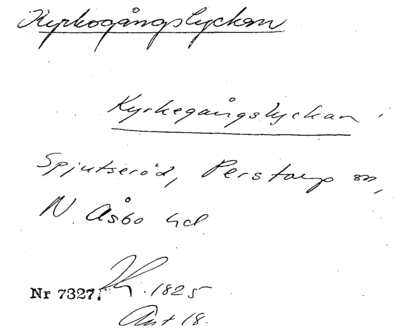 Kyrkogångslyckan
Kyrkegångslyckan
Spjutseröd, Perstorp sn,
N. Åsbo hd.
Nr 7327. 1825
Akt 18.